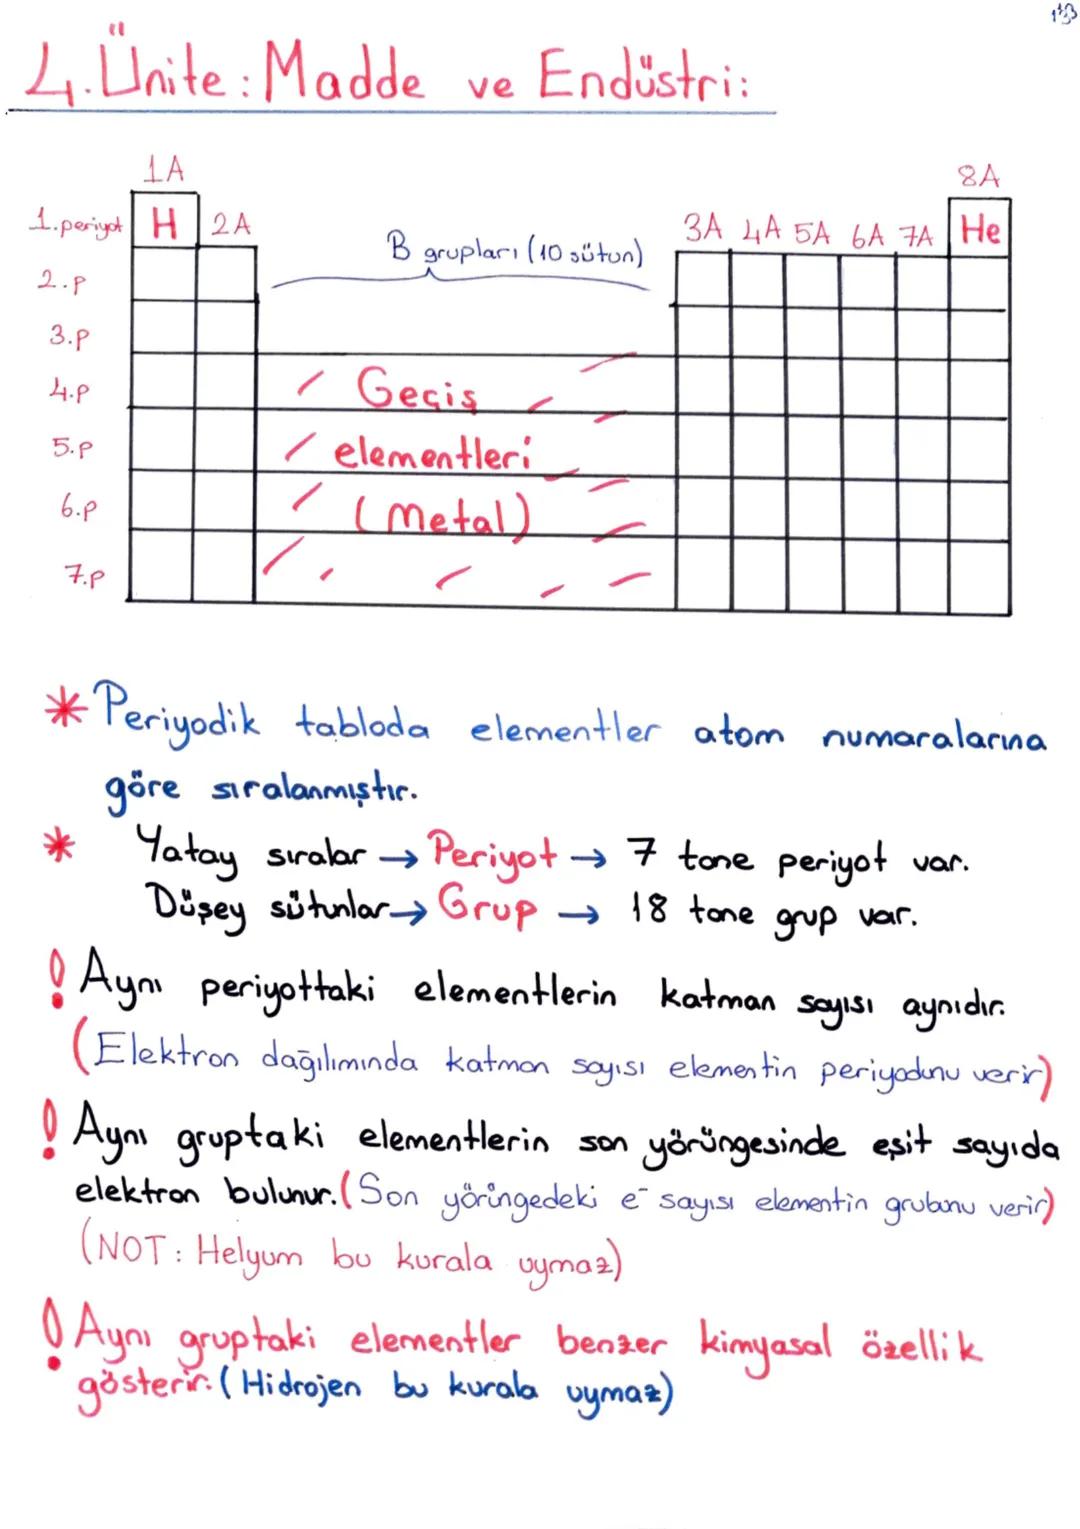 133
4.Ünite: Madde ve Endüstri:
1A 8A
1.periyot H 2A B grupları (10 sütun) 3A 4A 5A 6A 7A He
2.p
3.p
4.p Geçiş
5.p elementleri
6.p (Metal)
7.p
* Periyodik tabloda elementler atom numaralarına
göre sıralanmıştır.
* Yatay sıralar → Periyot → 7 tane periyot var.
Düşey sütunlar → Grup → 18 tane grup var.
! Aynı periyottaki elementlerin katman sayısı aynıdır.
(Elektron dağılımında katman sayısı elementin periyodunu verir)
! Aynı gruptaki elementlerin son yörüngesinde eşit sayıda
elektron bulunur. (Son yörüngedeki e⁻ sayısı elementin grubunu verir)
(NOT: Helyum bu kurala uymaz)
! Aynı gruptaki elementler benzer kimyasal özellik
gösterir. (Hidrojen bu kurala uymaz)